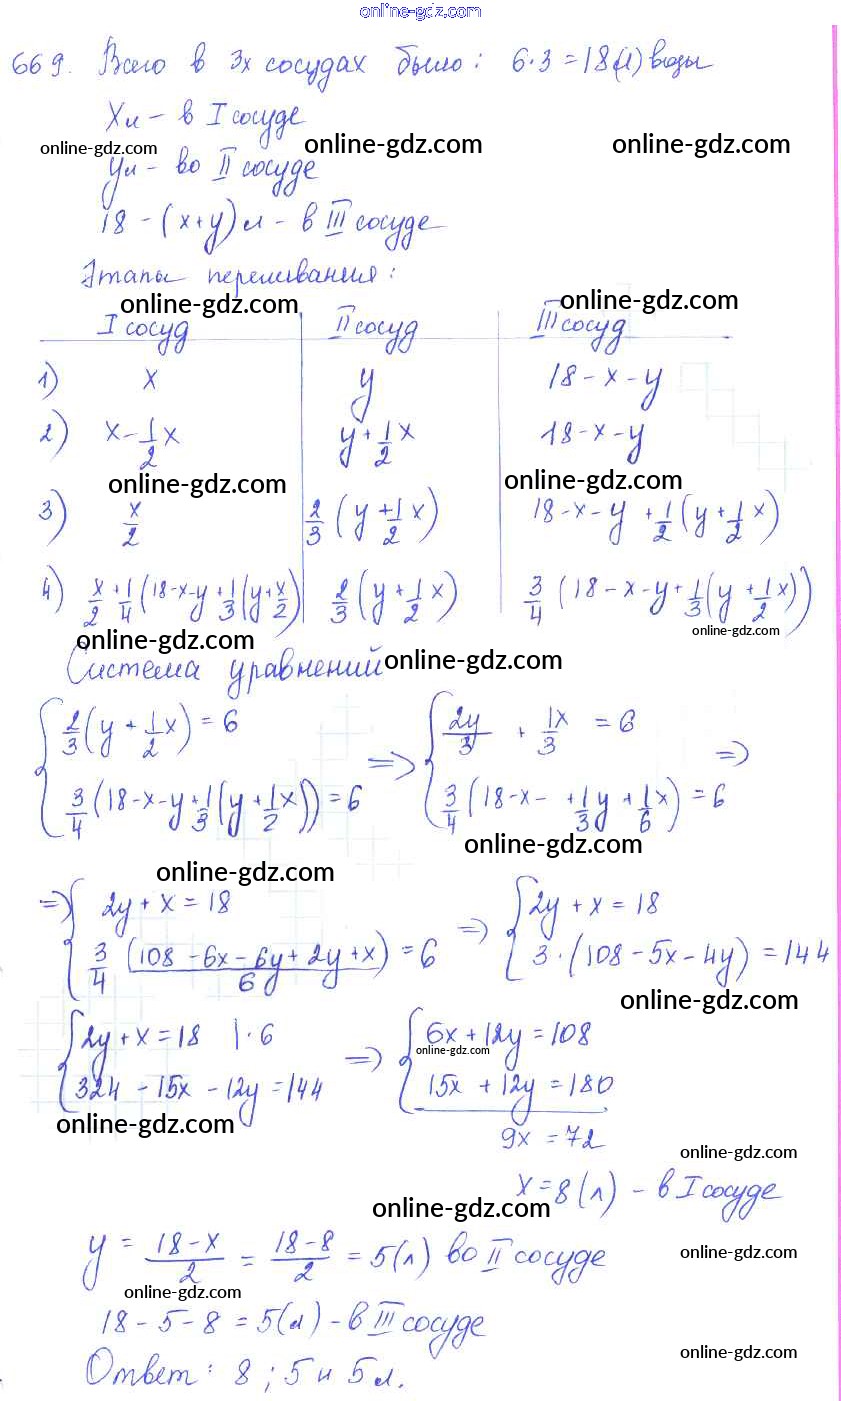 online-gdz.com
669. Всего в 3х сосудах было: 6·3=18(л) воды
Xл - в I сосуде
online-gdz.com online-gdz.com online-gdz.com
yл - во II сосуде
18 - (x+y) л - в III сосуде
Этапы переливания:
online-gdz.com online-gdz.com
I сосуд II сосуд III сосуд
1) x y 18-x-y
2) x - 1/2 x y + 1/2 x 18-x-y
online-gdz.com online-gdz.com
3) x/2 2/3 (y + 1/2 x) 18-x-y + 1/2 (y + 1/2 x)
4) x/2 + 1/4 (18-x-y + 1/3 (y + x/2) 2/3 (y + 1/2 x) 3/4 (18-x-y + 1/3 (y + 1/2 x))
online-gdz.com online-gdz.com
Система уравнений online-gdz.com
{ 2/3 (y + 1/2 x) = 6 { 2y/3 + 1x/3 = 6
=> =>
3/4 (18-x-y + 1/3 (y + 1/2 x)) = 6 3/4 (18-x- + 1/3 y + 1/6 x) = 6
online-gdz.com
online-gdz.com
=> { 2y + x = 18 => { 2y + x = 18
3/4 (108 - 6x - 6y + 2y + x)/6 = 6 3·(108 - 5x - 4y) = 144
online-gdz.com
{ 2y + x = 18 |·6 => { 6x + 12y = 108
online-gdz.com
324 - 15x - 12y = 144 15x + 12y = 180
online-gdz.com
9x = 72
online-gdz.com
x = 8 (л) - в I сосуде
online-gdz.com
y = (18-x)/2 = (18-8)/2 = 5(л) во II сосуде
online-gdz.com
online-gdz.com
18 - 5 - 8 = 5(л) - в III сосуде
online-gdz.com
Ответ: 8; 5 и 5 л.